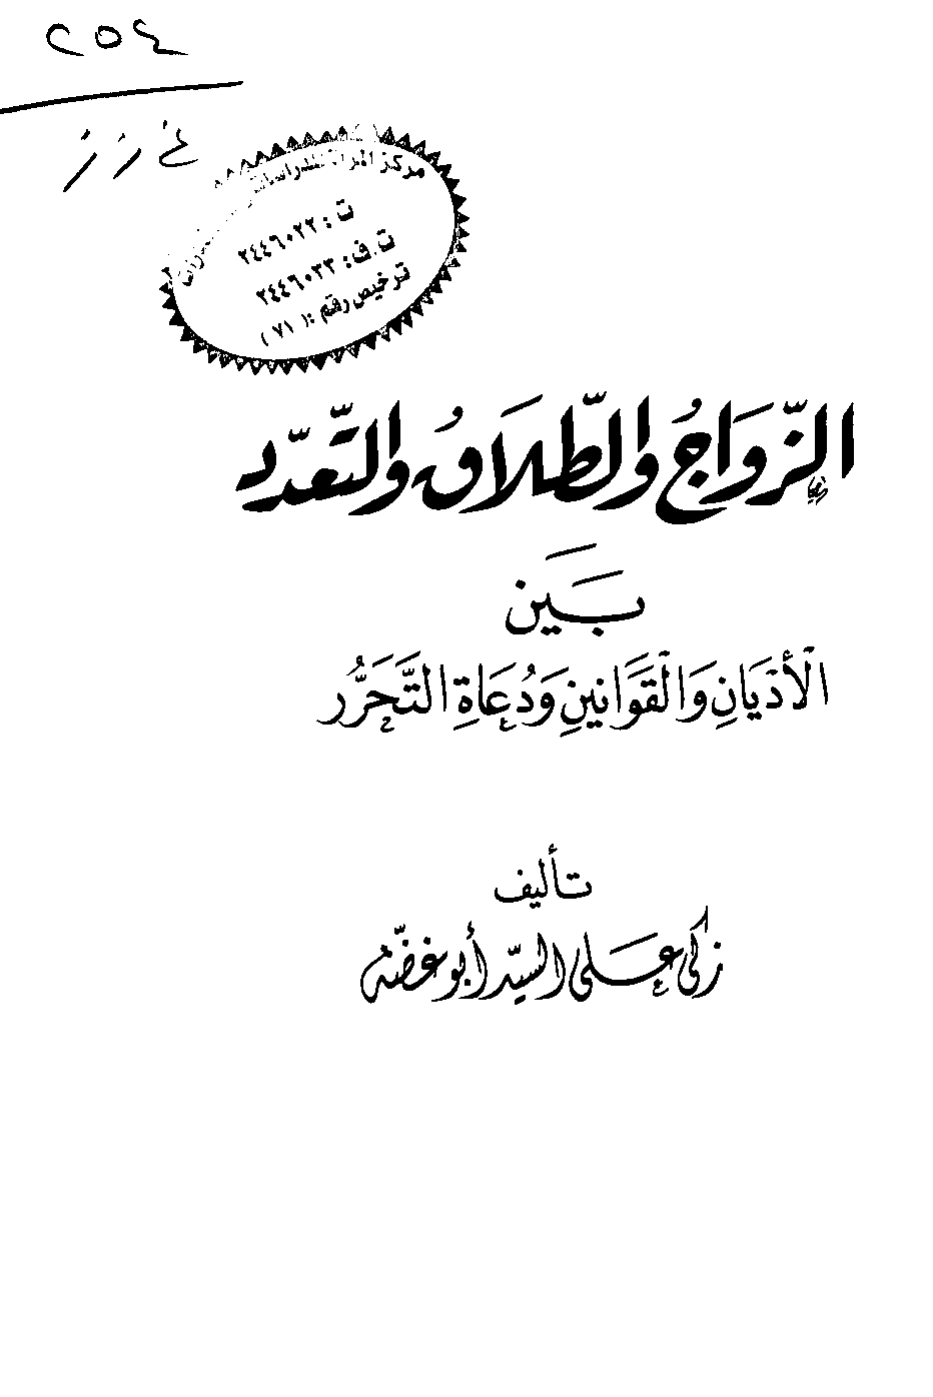 ٢٥٤
غ ز ز
مركز المرأة للدراسات
ت : ٢٤٤٦٠٢٢
ت.ف: ٢٤٤٦٠٣٣
ترخيص رقم :( ٧١ )
الزّوَاجُ والطّلَاقُ والتّعدّد
بَيَن
الْأَدْيَانِ وَالْقَوَانِينِ وَدُعَاةِ التَّحَرُّر
تأليف
زكى على السيّد أبو غضّة